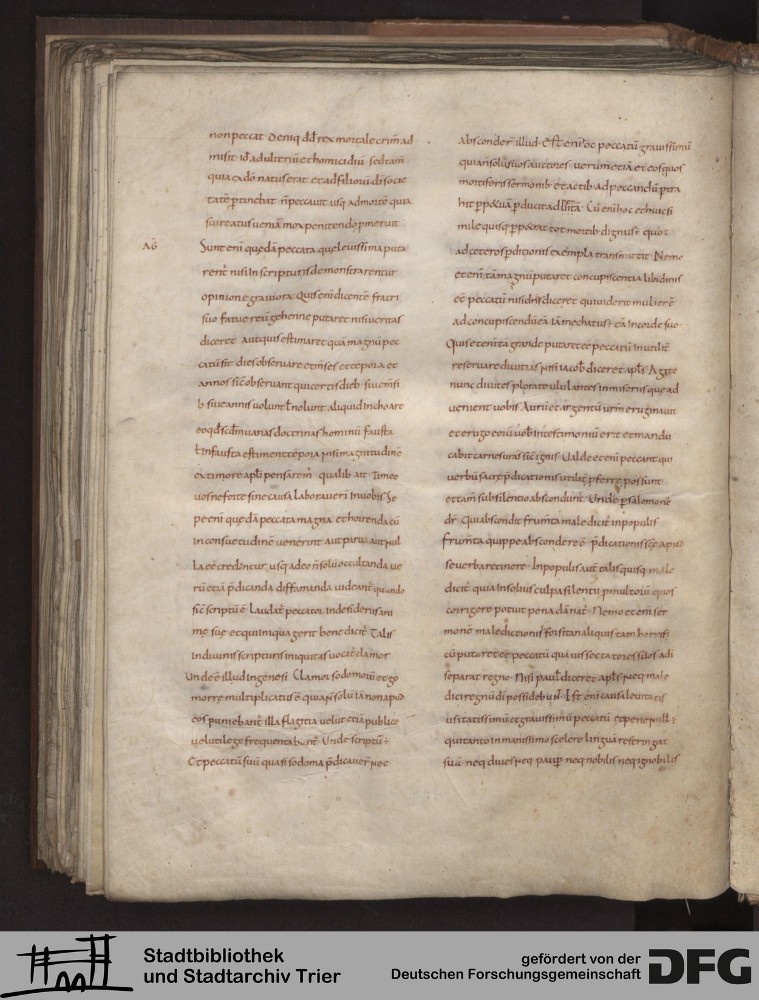 non peccat. Deniq; dd̄ rex mortale crim̄ ad
misit. id̄ adulteriū et homicidiū. sed tam̄
quia ex dō natus erat. et ad filiorū dī̄ socie
tatē ꝑtinebat. n̄ peccauit usq; ad mortē. quia
AḠ
Sunt enī quędā peccata quę leuissima puta
rent̄. nisi in scripturis demonstrarentur
opinione grauiora. Quis enī dicentē fratri
suo fatue reū gehennę putaret nisi ueritas
diceret. aut quis estimaret quā magnū pec
catū sit. dies obseruare et m̄ses et tēpora et
annos. sic̄ obseruant qui certis dieb. siue m̄si
b. siue annis uolunt ł nolunt aliquid inchoare
eo qd̄ scd̄m uanas doctrinas hominū fausta
ł infausta estiment tēpora. nisi magnitudinē
ex timore apłi pensarem̄. qualib. ait. Timeo
uos ne forte sine causa laborauerī in uobis. Se
pe enī quędā peccata magna et horrenda cū
in consuetudinē uenerint aut parua aut nul
la eē credūntur. usq; adeo n̄ solū occultanda ue
rū etiā p̄dicanda diffamanda uideant̄. quando
sic̄ scriptū ē. Laudat̄ peccator in desideriis ani
mę suę. et qui iniqua gerit benedicit̄. Talis
in diuinis scripturis iniquitas uocat̄ clamor
Unde ē illud in genesi. Clamor sodomorū et go
morre multiplicatus ē.
eos puniebant̄ illa flagitia uelut etiā publice
uelut lege frequentabant̄. Unde scriptū ÷
Et peccatū suū quasi sodoma p̄dicauer̄ nec
absconder̄ illud. Est enī hoc peccatū grauissimū
quia n̄ solū suos auctores. uerum etiā et eos quos
mortiferis sermonib. et actib. ad peccandū ptra
Cū enī hoc et huic si
mile quisq; ꝑpetrat tot mortib. dignus ÷ quot
ad ceteros ꝑditionis exempla transmittit. Nemo
et enī tā magnū putaret concupiscentia libidinis
eē peccatū nisi dn̄s diceret. qui uiderit mulierē
ad concupiscendū eā. iā mechatus ÷ eā in corde suo
Quis et enī tā grande putaret eē peccatū inutilit̄
reseruare diuitias nisi iacob. diceret apłs. Agite
nunc diuites plorate ululantes in miseriis quę ad
uenient uobis. Aurū et argentū urm̄ eruginauit
et erugo eorū uob. in testimoniū erit. et mandu
cabit carnes uras sic̄ ignis. Ualde et enī peccant qui
uerbū sacrę p̄dicationis utilit̄ ꝓferre possunt
et tam̄ sub silentio abscondunt. Unde ꝑ salomonē
dr̄. Qui abscondit frum̄ta maledicit̄ in populis
Frum̄ta quippe abscondere ē p̄dicationis scę apud
se uerba retinere. In populis aut̄ talis quisq; male
dicit̄. quia in solius culpa silentii ꝓ multorū quos
corrigere potuit pena dānat̄. Nemo et enī ser
monē maledictionis forsitan aliquis tam horrifi
cū putaret eē peccatū qđ uis sectatores suos a di
separat regno. Nisi paul. diceret apłs neq; male
dici regnū di possidebunt. Est enī causa leuitatis
usitatissimū et grauissimū peccatū. et pene null. ÷
qui tanto inmanissimo scelere linguā restringat
suā. neq; diues neq; pauꝑ. neq; nobilis neq; ignobilis
Stadtbibliothek
und Stadtarchiv Trier
gefördert von der
Deutschen Forschungsgemeinschaft
DFG